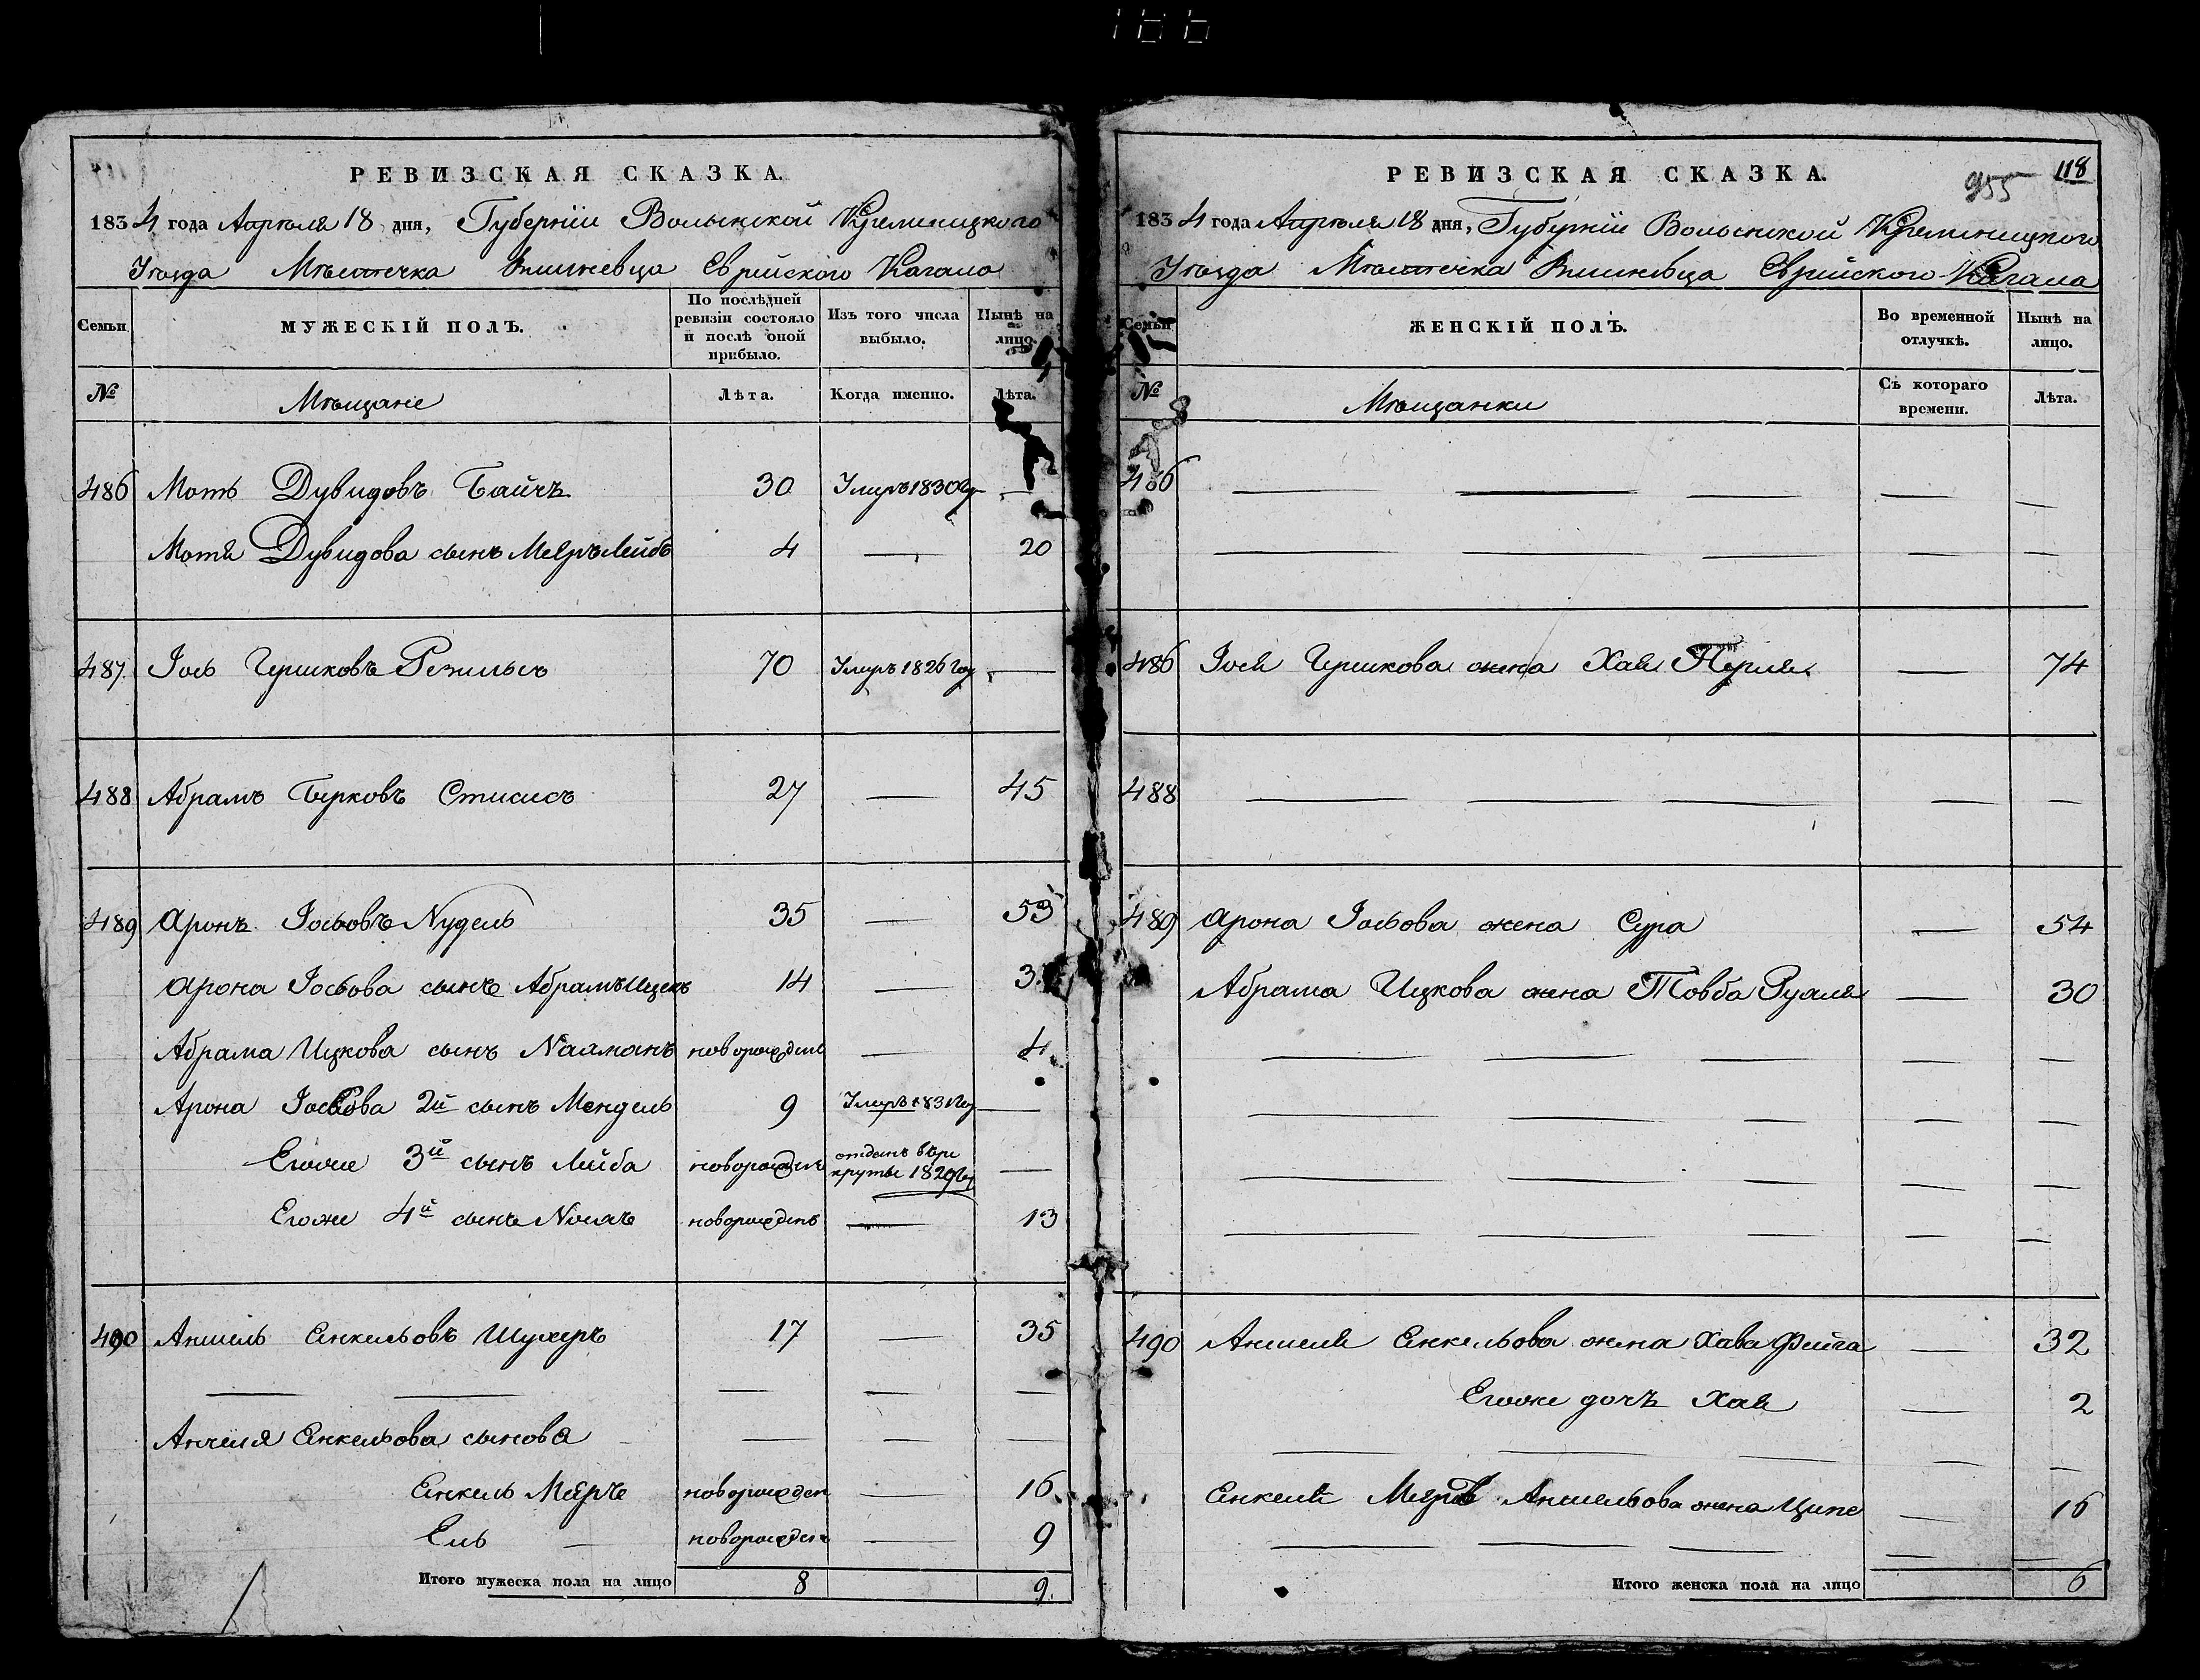 166
РЕВИЗСКАЯ СКАЗКА.
1834 года Апрѣля 18 дня, Губерніи Волынской Кременицкого
Уѣзда Мѣстечка Вишневца Еврейского Кагала
Семьи
МУЖЕСКІЙ ПОЛЪ.
По послѣдней ревизіи состояло и послѣ оной прибыло.
Изъ того числа выбыло.
Нынѣ на лицо.
№
Мѣщане
Лѣта.
Когда именно.
Лѣта.
486 Моть Дувидовъ Байчъ 30 Умеръ 1830 Го —
Мотя Дувидова сынъ Меяръ Лейбъ 4 — 20
487 Іось Гершковъ 70 Умеръ 1826 Го —
488 Абрамъ Берковъ 27 — 45
489 Аронъ Іосьовъ Nудель 35 — 53
Арона Іосьова сынъ Абрамъ Ицекъ 14 — 3
Абрама Ицкова сынъ Nахманъ новорожденъ — 4
Арона Іосьова 2й сынъ Мендель 9 Умеръ 1831 Го —
Егоже 3й сынъ Лейба новорожденъ отданъ въ ре
круты 1829 Го —
Егоже 4й сынъ новорожденъ — 13
490 Аншель Енкельовъ 17 — 35
— — — — —
Аншеля Енкельова сыновя — — —
Енкель Меяръ новорожден — 16
Ель — новорожден — 9
Итого мужеска пола на лицо 8 9.
РЕВИЗСКАЯ СКАЗКА.
955 118
1834 года Апрѣля 18 дня, Губерніи Волынской Кременицкого
Уѣзда Мѣстечка Вишневца Еврейского Кагала
Семьи
ЖЕНСКІЙ ПОЛЪ.
Во временной отлучкѣ.
Нынѣ на лицо.
№
Мѣщанки
Съ котораго времени.
Лѣта.
486 — — — — —
— — — — —
486 Іося Гершкова жена Хая Перля — 74
488 — — — — —
489 Арона Іосьова жена Сура — 54
Абрама Ицкова жена Товба Рухля — 30
— — — — —
— — — — —
— — — — —
— — — — —
490 Аншеля Енкельова жена Хава Фейга — 32
Егоже дочъ Хая — 2
— — — — —
Енкеля Меяра Аншельова жена Ципе — 16
— — — — —
Итого женска пола на лицо 6